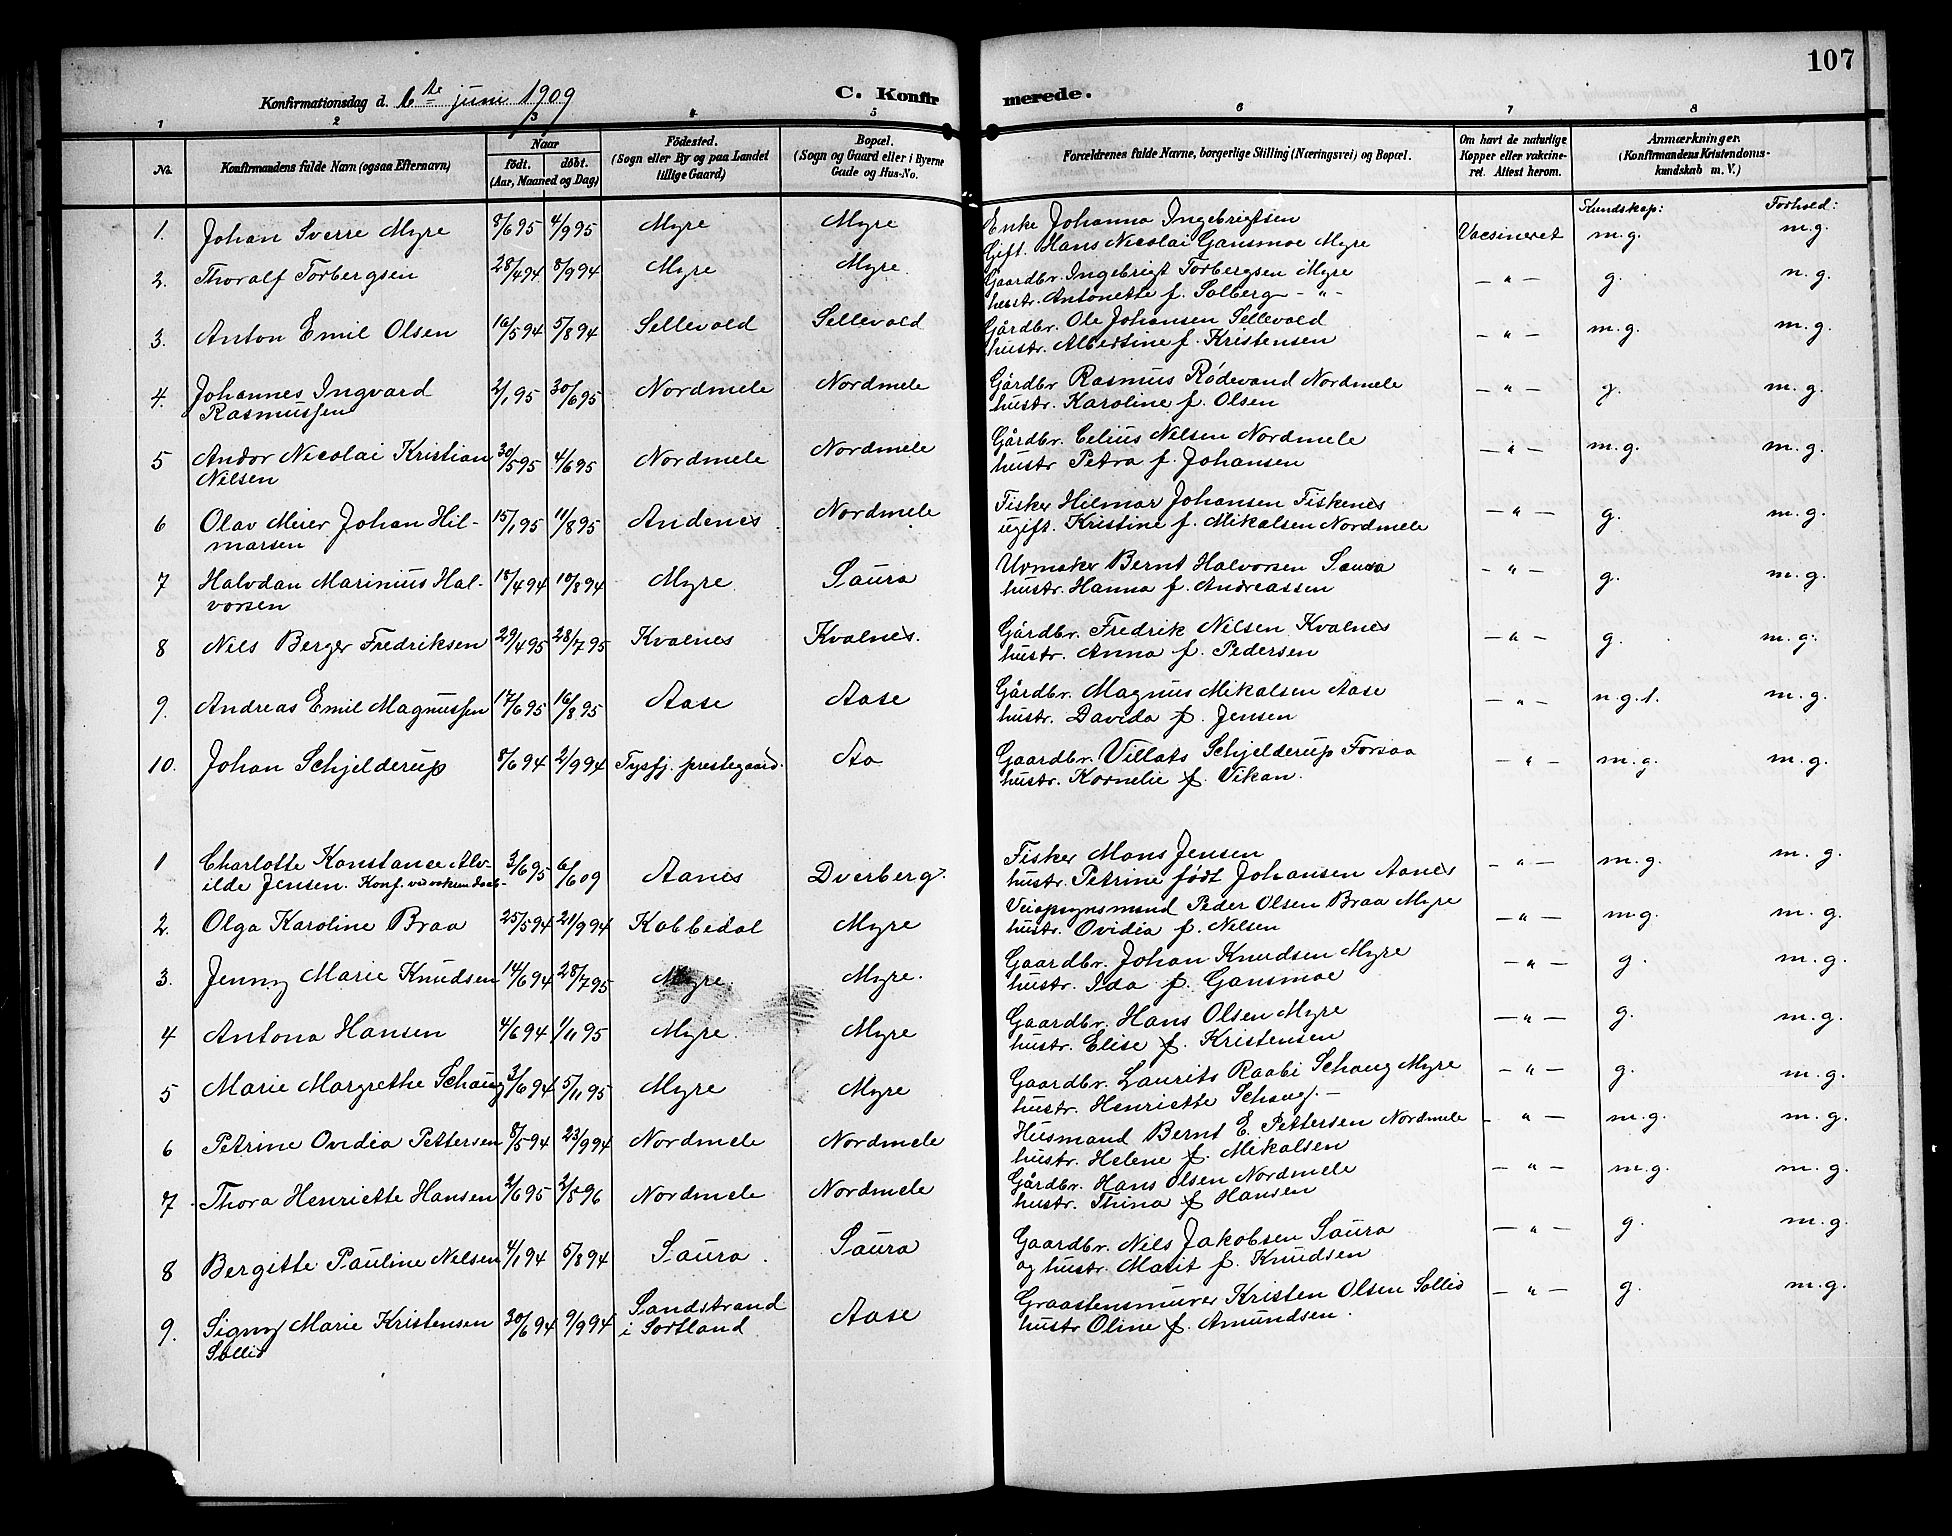 107
Konfirmationsdag d. 6te juni 1909
C. Konfirmerede.
1 2 3 4 5 6 7 8
No. Konfirmandens fulde Navn (ogsaa Efternavn) Naar født. døbt. (Aar, Maaned og Dag) Fødested. (Sogn eller By og paa Landet tillige Gaard) Bopæl. (Sogn og Gaard eller i Byerne Gade og Hus-No. Forældrenes fulde Navne, borgerlige Stilling (Næringsvei) og Bopæl. Om havt de naturlige Kopper eller vaccineret. Attest herom. Anmærkninger. (Konfirmandens Kristendomskundskab m. V.)
Kundskap: Forhold:
1. Johan Sverre Myre 8/6 95 4/9 95 Myre Myre Enke Johanna Ingebrigtsen Vacsineret m.g. m.g.
Gift. Hans Nicolai Gansmoe Myre
2. Thoralf Torbergsen 28/4 94 8/9 94 Myre Myre. Gaardbr. Ingebrigt Torbergsen Myre — " — g. n.g.
hustr. Antonette f. Solberg — " —
3. Anton Emil Olsen 16/5 94 5/8 94 Sellevold Sellevold Gårdbr. Ole Johansen Sellevold — " — m.g. m.g.
hustr. Albertine f. Kristensen
4. Johannes Ingvard 2/1 95 30/6 95 Nordmele Nordmele Gårdbr Rasmus Rødevand Nordmele — " — g. m.g.
Rasmussen hustr. Karoline f. Olsen
5 Andor Nicolai Kristian 30/5 95 4/6 95 Nordmele Nordmele Gårdbr. Celius Nilsen Nordmele — " — m.g. m.g.
Nilsen hustr Petra f. Johansen
6 Olav Meier Johan Hil- 15/1 95 11/8 95 Andenes Nordmele Fisker Hilmar Johansen Fiskenes — " — g. m.g.
marsen ugift. Kristine f. Mikalsen Nordmele
7 Halvdan Marinius Hal- 18/4 94 10/8 94 Myre Saura Urmaker Bernt Halvorsen Saura — " — g. m.g.
vorsen hustr. Hanna f. Andreassen
8 Nils Berger Fredriksen 29/4 95 28/7 95 Kvalnes Kvalnes. Gårdbr. Fredrik Nilsen Kvalnes — " — g. m.g.
hustr. Anna f. Pedersen
9. Andreas Emil Magnussen 17/6 95 16/8 95 Aase Aase Gårdbr. Magnus Mikalsen Aase — " — n.g.t. m.g.
hustr. Davida f. Jensen
10. Johan Schjelderup 8/6 94 2/9 94 Tysfj. prestegaard. Aa Gaardbr. Villats Schjelderup Forsaa — " — m.g. m.g.
hustr. Kornelie f. Vikan.
1 Charlotte Konstance Alv- 3/6 95 6/6 09 Aanes Dverberg. Fisker Mons Jensen — " — m.g. m.g.
ilde Jensen. Konf. ved voksen daab. hustr. Petrine født Johansen Aanes
2. Olga Karoline Braa 25/5 94 21/9 94 Kabbedal Myre Veiopsynsmand Peder Olsen Braa Myre — " — m.g. m.g.
hustr. Ovidia f. Nilsen
3. Jenny Marie Knudsen 14/6 94 28/7 95 Myre. Myre. Gaardbr. Johan Knudsen Myre — " — g. m.g.
hustr. Ida f. Gansmoe
4 Antona Hansen 4/6 94 1/11 95 Myre. Myre Gaardbr. Hans Olsen Myre — " — g. m.g.
hustr. Elise f. Kristensen
5 Marie Margrethe Schaug 3/6 94 5/11 95 Myre Myre Gaardbr. Laurits Raabi Schaug Myre — " — g. m.g.
hustr. Henriette Schaug. —
6 Petrine Ovidia Pettersen 8/5 94 23/9 94 Nordmele Nordmele Husmand Bernt E. Pettersen Nordmele - " — m.g. m.g.
hustr. Helene f. Mikalsen
7 Thora Henriette Hansen 2/6 95 2/5 96 Nordmele Nordmele Gårdbr. Hans Olsen Nordmele — " — m.g. m.g.
hustr. Thina f Hansen
8 Bergitte Pauline Nilsen 4/1 94 5/8 94 Saura Saura Gaardbr. Nils Jakobsen Saura — " — g. m.g.
og hustr. Marit f. Knudsen
9. Signy Marie Kristensen 30/6 94 9/9 94 Sandstrand Aase Graastensmurer Kristen Olsen Sollid — " — g. m.g.
Sollid i Sortland hustr Oline f. Amundsen.